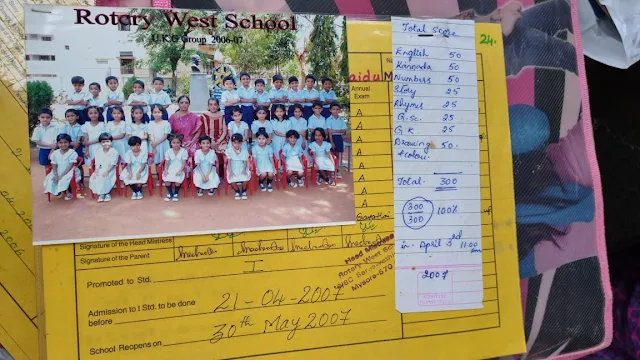 Rotary West School
U.K.G Group 2006-07
Total Score
24.
English 50
Kannada 50
Numbers 50
Story 25
Rhymes 25
G.Sc. 25
G K 25
Drawing 50.
+colour
Total. 300
300/300 100%
in April 3rd 11:00
2007
aidu M
Annual
Exam
A
A
A
A
A
A
A
Signature of the Head Mistress
Signature of the Parent
Promoted to Std. I
Admission to I Std. to be done
before 21-04-2007
School Reopens on 30th May 2007
Head Mistress
Rotary West
Mysore-570